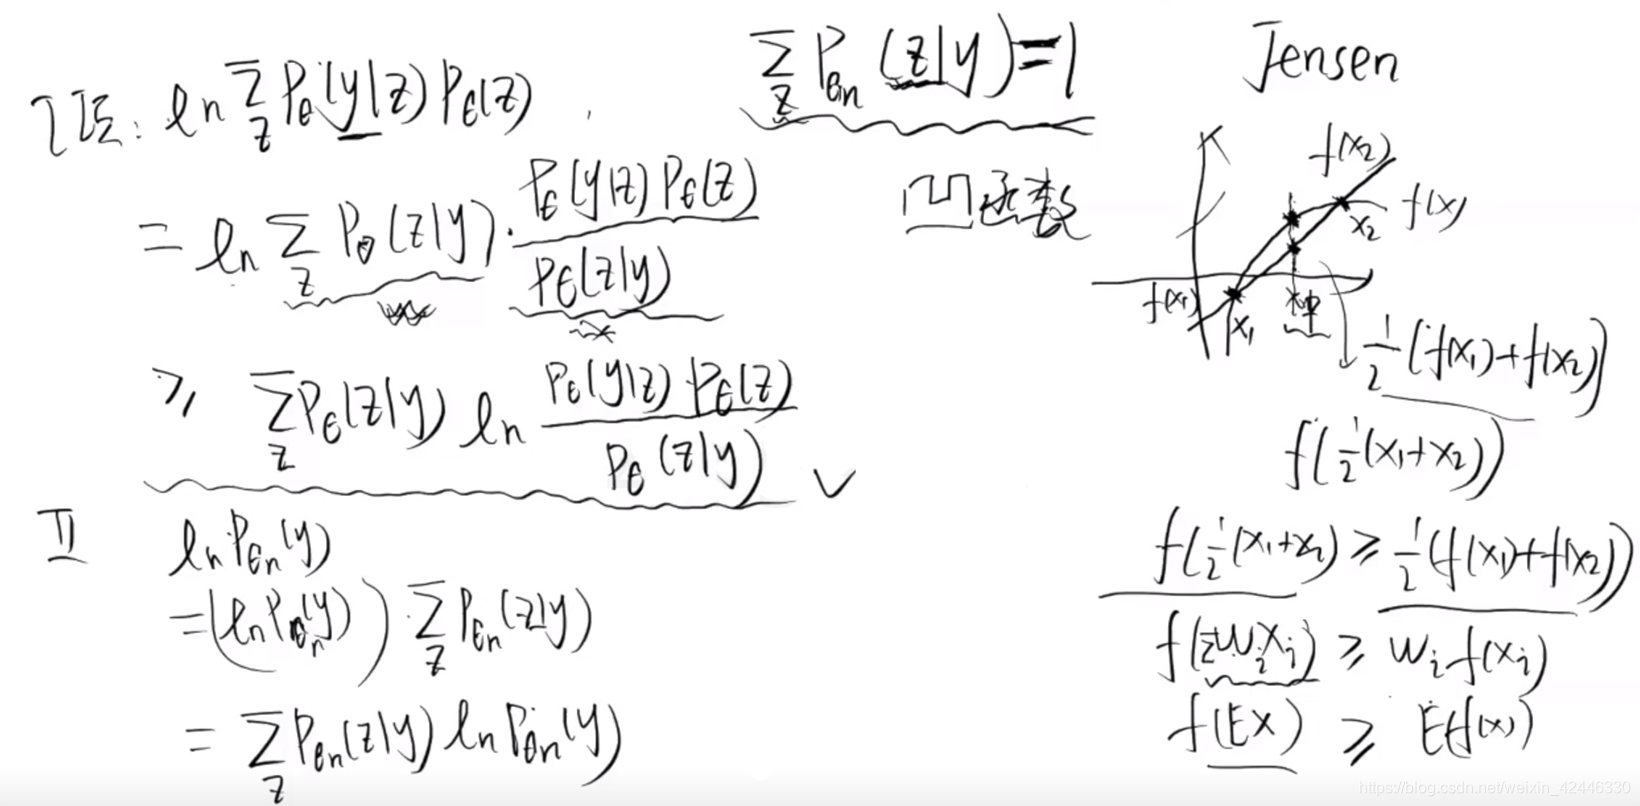 I 证: ln ∑_z P_θ(y|z) P_θ(z)
= ln ∑_z P_θ(z|y) · P_θ(y|z) P_θ(z) / P_θ(z|y)
≥ ∑_z P_θ(z|y) ln P_θ(y|z) P_θ(z) / P_θ(z|y) ✓
II ln P_θn(y)
= (ln P_θn(y)) ∑_z P_θn(z|y)
= ∑_z P_θn(z|y) ln P_θn(y)
∑_z P_θn(z|y) = 1
凹函数
Jensen
f(x₂)
f(x)
x₂
f(x₁)
x₁
½(f(x₁)+f(x₂))
f(½(x₁+x₂))
f(½(x₁+x₂)) ≥ ½(f(x₁)+f(x₂))
f(∑W_i x_i) ≥ W_i f(x_i)
f(EX) ≥ Ef(x)
https://blog.csdn.net/weixin_42446330